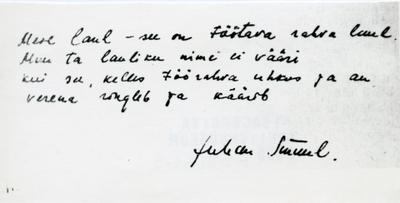 Meie laul – see on töötava rahva laul.
Muu ta lauliku nimi ei vääri
kui see, kelles töörahva uhkus ja au
verena ringleb ja käärib
Juhan Smuul.